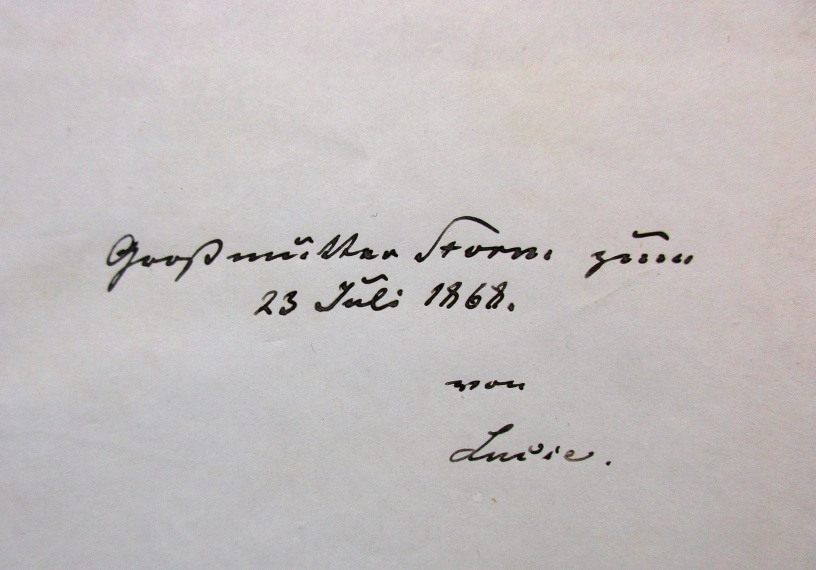 Großmutter Storm zum
23 Juli 1868.
von
Lucie.